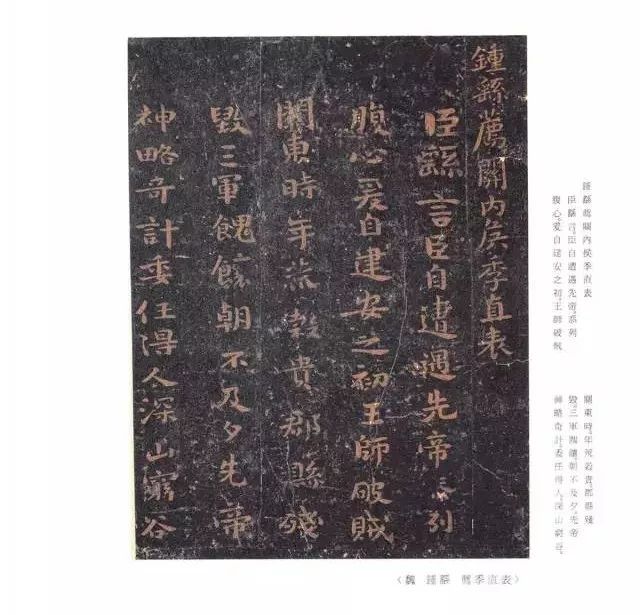 鍾繇薦關內侯季直表
臣繇言。臣自遭遇先帝。忝列
腹心。爰自建安之初。王師破賊
關東。時年荒穀貴。郡縣殘
毀。三軍餽饟。朝不及夕。先帝
神略奇計。委任得人。深山窮谷。
鍾繇薦關内侯季直表
臣繇言臣自遭遇先帝忝列
腹心爰自建安之初王師破賊
關東時年荒穀貴郡縣殘
毀三軍餽饟朝不及夕先帝
神略奇計委任得人深山窮谷
〈魏 鍾繇 薦季直表〉